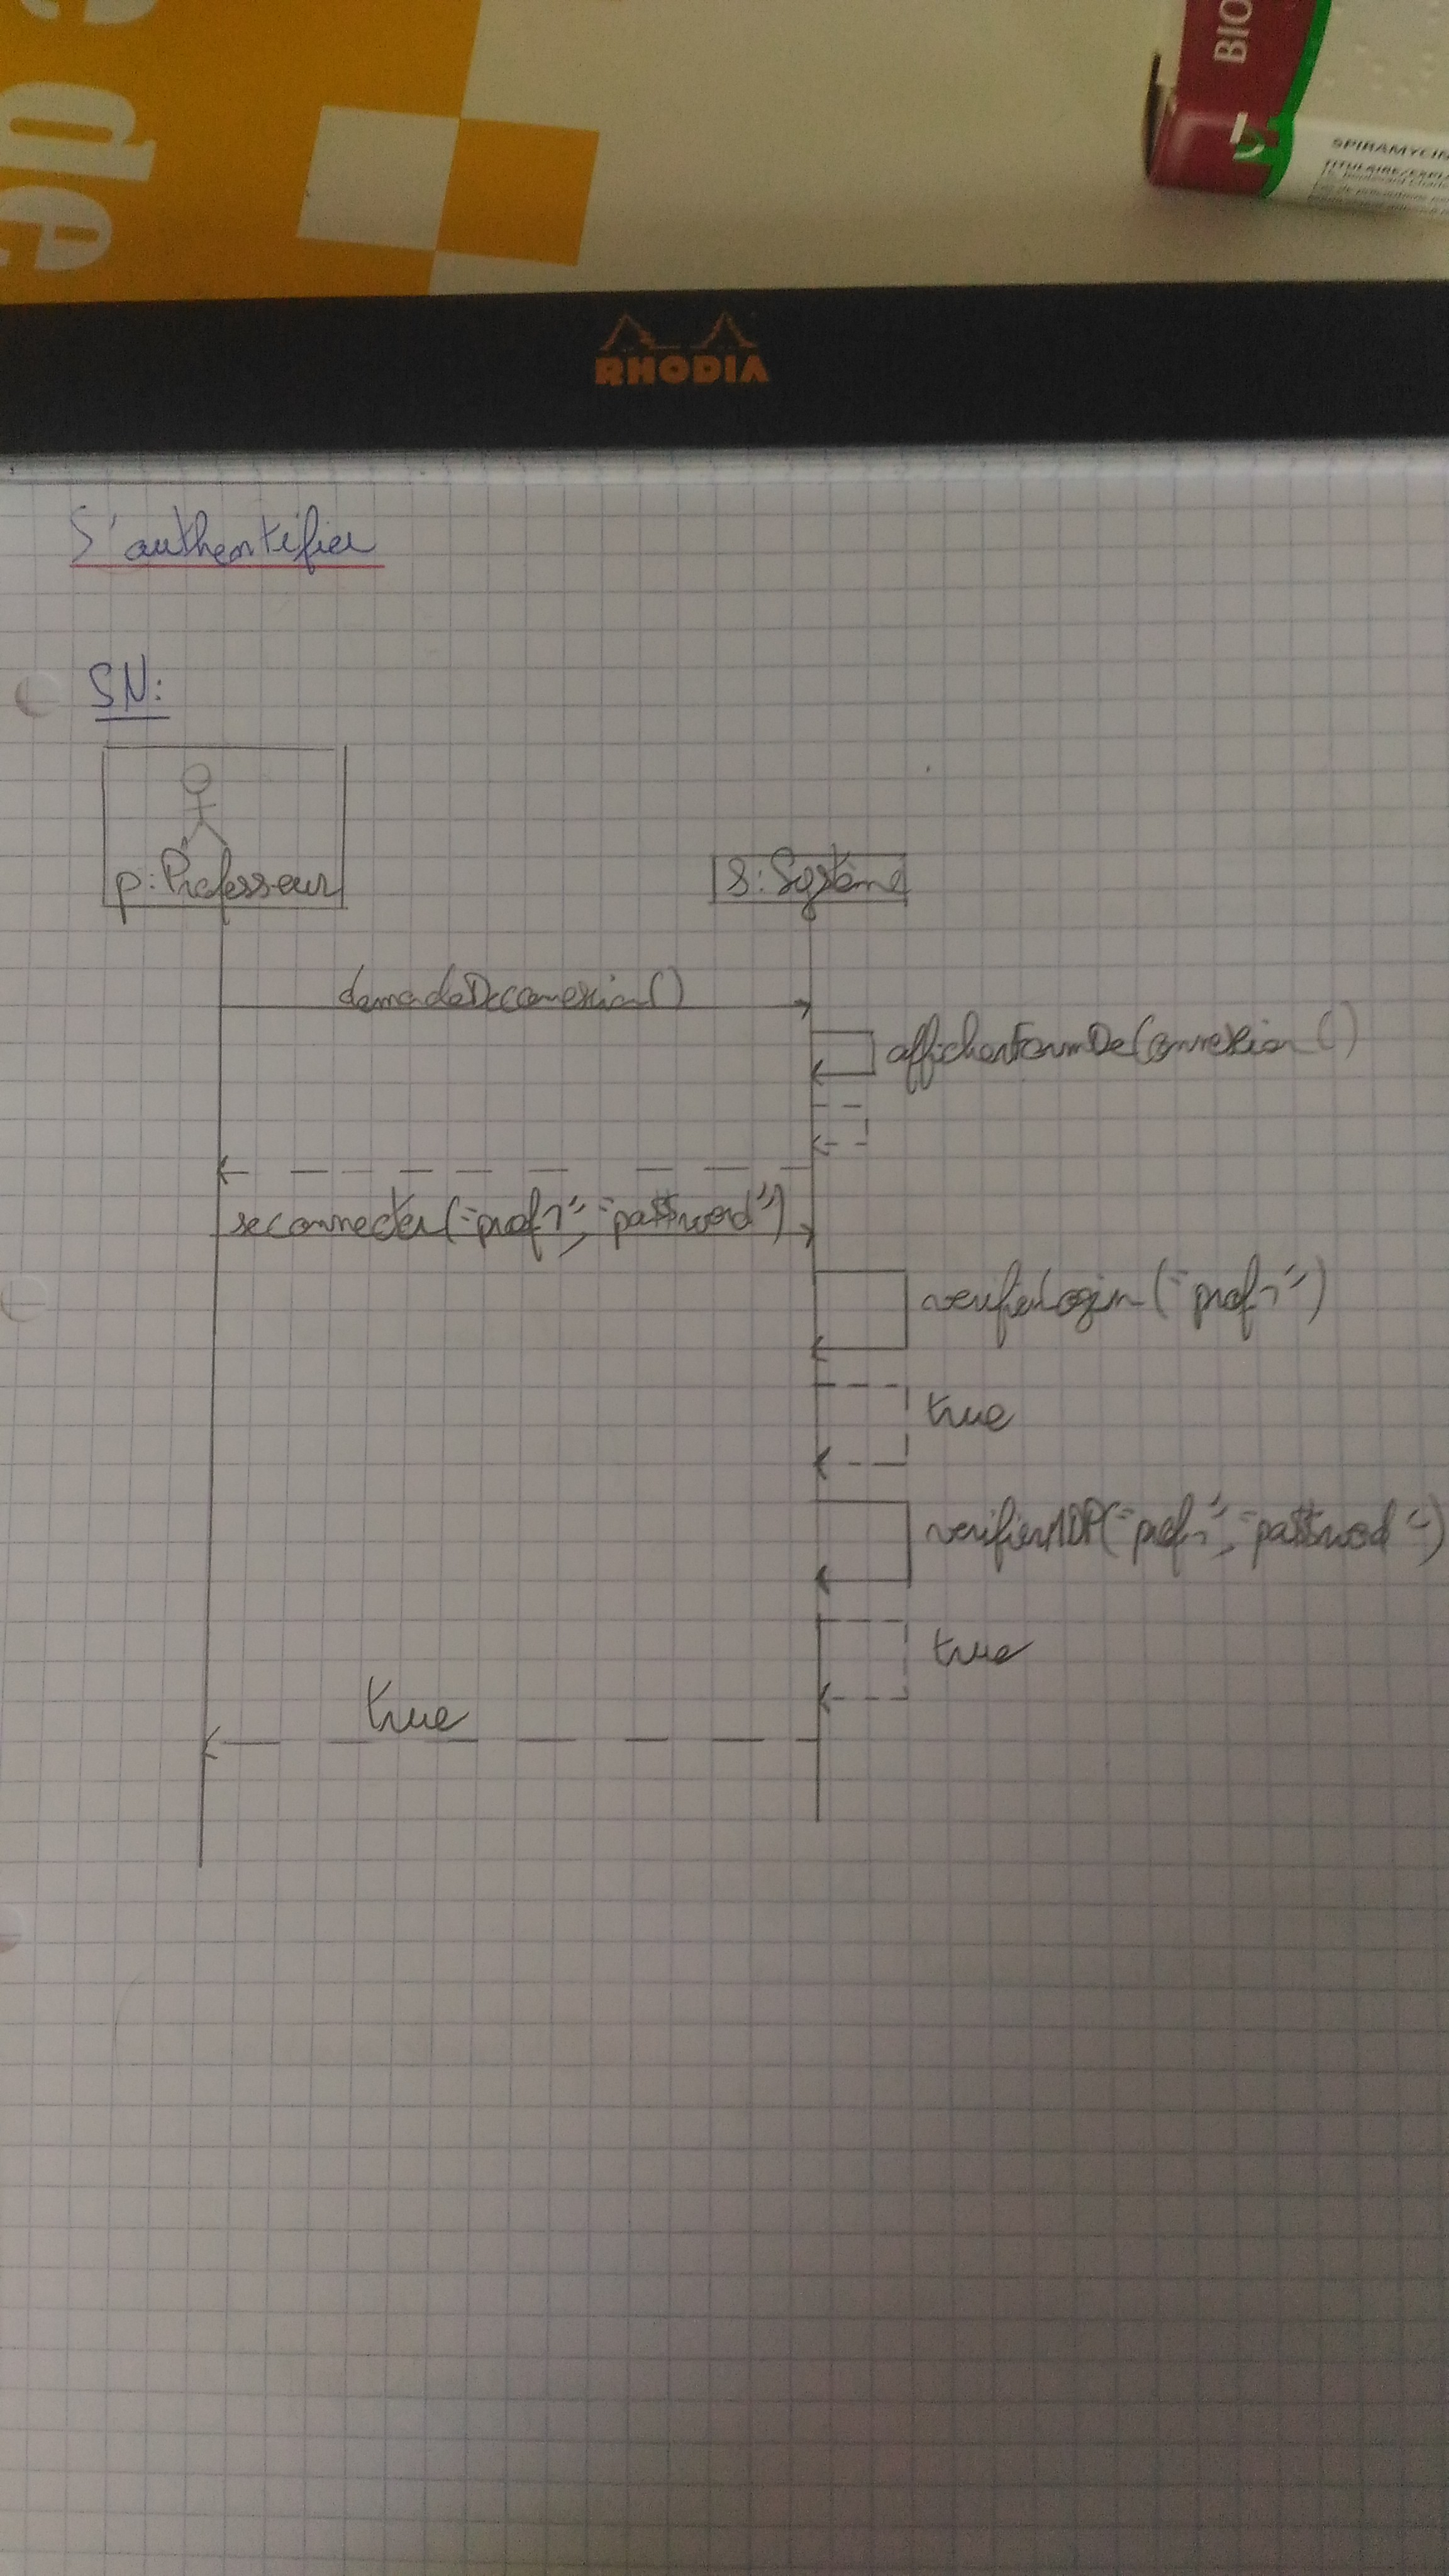 de
BIO
SPIRAMYCIN
RHODIA
S'authentifier
SN:
p:Professeur
S:Système
demadeDeconnexion()
afficherFormDeConnexion()
seconnecter("prof1", "password")
verifierLogin("prof1")
true
verifierMDP("prof1", "password")
true
true